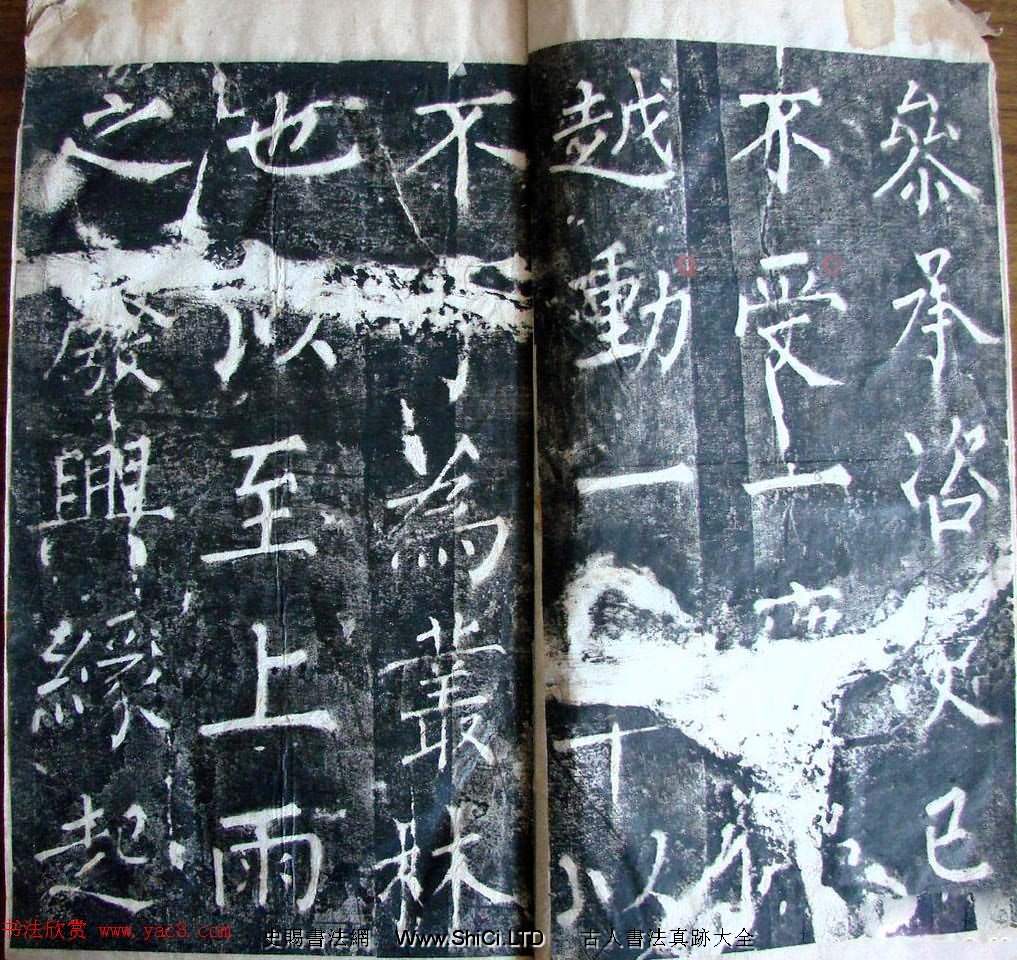 參承咨決已
不受一
越動一下以
不可為叢林
也以至上雨
之廢興緣起
书法欣赏 www.yac8.com
史賜書法網 Www.ShiCi.LTD 古人書法真跡大全